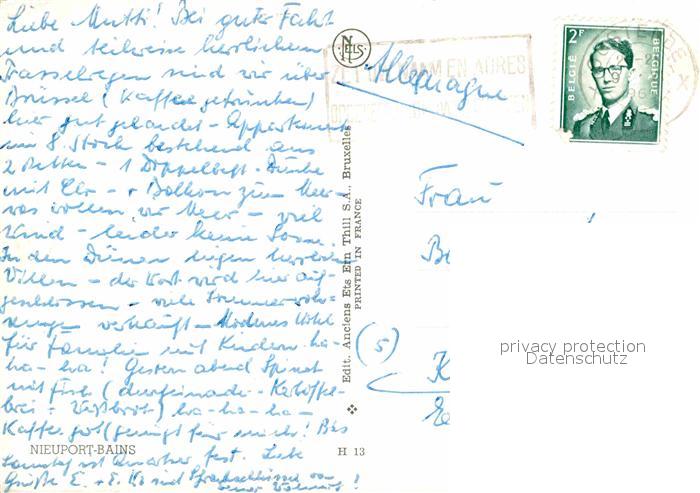 Liebe Mutti! Bei guter Fahrt
und teilweise herrlichem
Prasselregen sind wir über
Brüssel (Kaffee getrunken)
hier gut gelandet - Appartement
im 8. Stock bestehend aus
2 Betten - 1 Doppelbett - Dusche
mit Clo - + Balkon zum Meer -
was wollen wir Meer - viel
Wind - leider keine Sonne.
In den Dünen liegen herrliche
Villen - der Ort wird hier auf-
geschlossen - viele Sommerwoh-
nungen verkauft - Modernes Hotel
für Familie mit Kindern ha-
ha-ha! Gestern abend Spinat
mit Fisch (durcheinander - Kartoffel-
brei - Weißbrot) ha-ha-ha-
Kaffee gut (genügt für mich! Bis
Samstag ist Quartier fest. Liebe
Grüße E. + E.
NIEUPORT-BAINS
H 13
NELS
Edit. Anciens Ets Ern Thill S.A., Bruxelles
PRINTED IN FRANCE
Allemagne
2F
BELGIË
BELGIQUE
Frau
(5)
K
privacy protection
Datenschutz